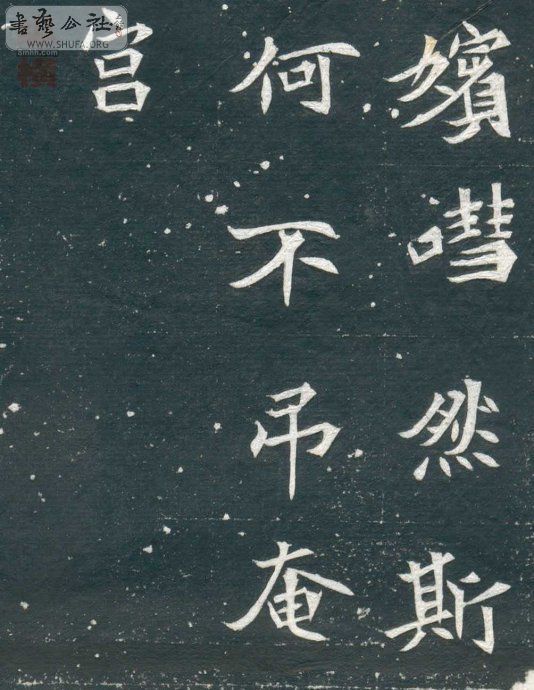 嬪嘒然斯
何不吊奄
宫
書藝公社
WWW.SHUFA.ORG